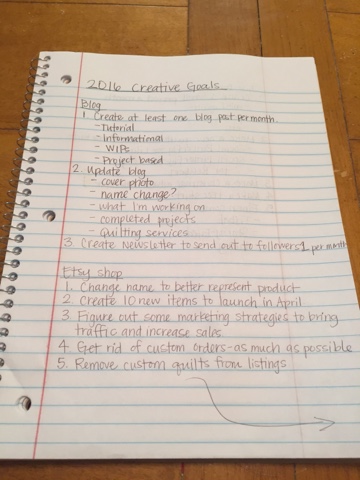 2016 Creative Goals
Blog
1. Create at least one blog post per month.
- Tutorial
- Informational
- WIPs
- Project based
2. Update blog
- cover photo
- name change?
- what I'm working on
- completed projects
- Quilting services
3. Create Newsletter to send out to followers 1 per month
Etsy shop
1. Change name to better represent product
2. Create 10 new items to launch in April
3. Figure out some marketing strategies to bring
traffic and increase sales
4. Get rid of custom orders - as much as possible
5. Remove custom quilts from listings